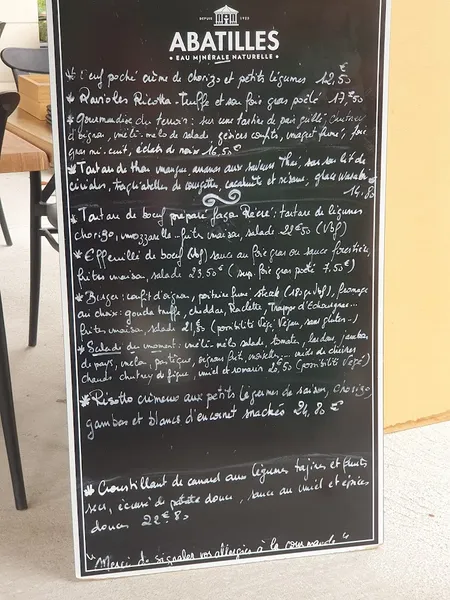 DEPUIS 1923
ABATILLES
• EAU MINÉRALE NATURELLE •
* Oeuf poché crème de chorizo et petits légumes 12,50€
* Ravioles Ricotta-Truffe et son foie gras poêlé 17,50
* Gourmandise du terroir : sur une tartine de pain grillé, chutney
d'oignon, méli-mélo de salade, gésiers confits, magret fumé, foie
gras mi-cuit, éclats de noix 16,50€
* Tartare de thon mangue ananas aux saveurs Thaï, sur son lit de
céréales, tagliatelles de courgettes, cacahuète et sésame, glace wasabi
14,80
* Tartare de boeuf préparé façon : tartare de légumes
chorizo, mozzarelle... frites maison, salade 22€50 (Vbf)
* Effeuillé de boeuf (Vbf) sauce au foie gras ou sauce forestière,
frites maison, salade 23,50€ (sup. foie gras poêlé 7.50€)
* Burger : confit d'oignon, poitrine fumé steak (180gr Vbf), fromage
au choix : gouda truffe, cheddar, Raclette, Trappe d'Echourgnac...
frites maison, salade 21,80 (possibilité Végé, Végan, sans gluten...)
* Salade du moment : méli-mélo salade, tomate, lardon, jambon
de pays, melon, pastèque, oignons frit, chèvres
chauds chutney de figue, miel et romarin 20,50 (possibilité Végé)
* Risotto crémeux aux petits légumes de saison, chorizo,
gambas et blancs d'encornet snackés 24,80 €
* Croustillant de canard aux légumes tajine et fruits
secs, écrasé de patate douce, sauce au miel et épices
douces 22€80
"Merci de signaler vos allergies à la commande"